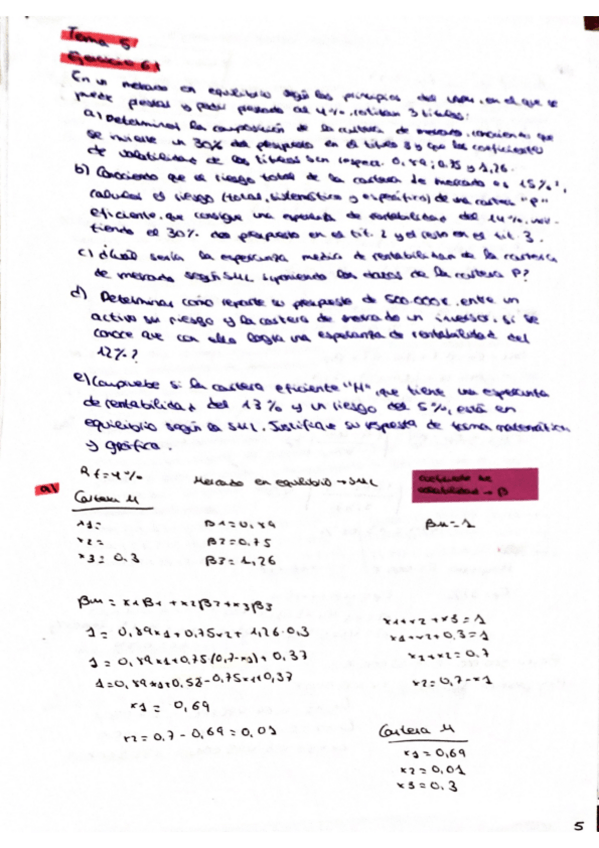 Tema 5
Ejercicio 61
En un mercado en equilibrio según los principios del , en el que se
puede prestar y pedir prestado al 4%, cotizan 3 títulos:
a) Determinar la composición de la cartera de mercado, que
se invierte un 30% del ppuesto en el título 3 y que los coeficientes
de volatilidad de los títulos son respec. 0,89; 0,75 y 1,26.
b) Conociendo que el riesgo total de la cartera de mercado es 15%²,
calcular el riesgo (total, sistemático y específico) de una cartera "P"
eficiente, que consigue una esperanza de rentabilidad del 14%, invir-
tiendo el 30% ppuesto en el tít. 2 y el resto en el tít. 3.
c) ¿Cuál sería la esperanza media de rentabilidad de la cartera
de mercado según SML suponiendo los datos de la cartera P?
d) Determinar cómo reparte su ppuesto de 500.000€, entre un
activo sin riesgo y la cartera de mercado un inversor, si se
conoce que con ello logra una esperanza de rentabilidad del
12%?
e) Compruebe si la cartera eficiente "H", que tiene una esperanza
de rentabilidad del 13% y un riesgo del 5%, está en
equilibrio según la SML. Justifique su respuesta de forma matemática
y gráfica.
a)
Rf=4%
Mercado en equilibrio → SML
coeficiente de
volatilidad → β
Cartera M
x1=
x2=
x3= 0,3
β1=0,89
β2=0,75
β3=1,26
βM=1
βM = x1β1 + x2β2+x3β3
1= 0,89x1+0,75x2+ 1,26·0,3
1= 0,89x1+0,75(0,7-x1)+ 0,37
1=0,89x1+0,52-0,75x1+0,37
x1= 0,69
x2= 0,7-0,69=0,01
x1+x2+x3=1
x1+x2+0,3=1
x1+x2=0,7
x2=0,7-x1
Cartera M
x1=0,69
x2=0,01
x3=0,3
5